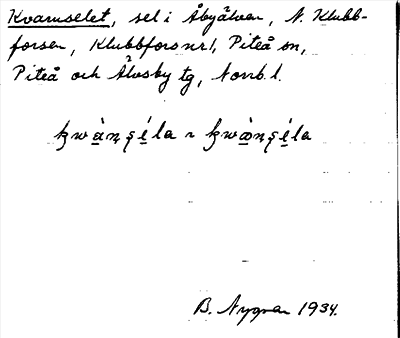 Kvarnselet, sel i Åbyälven, N. Klubb-
forsen, Klubbfors nr 1, Piteå sn,
Piteå och Älvsby tg, Norrb. l.
B. Nygren 1934.